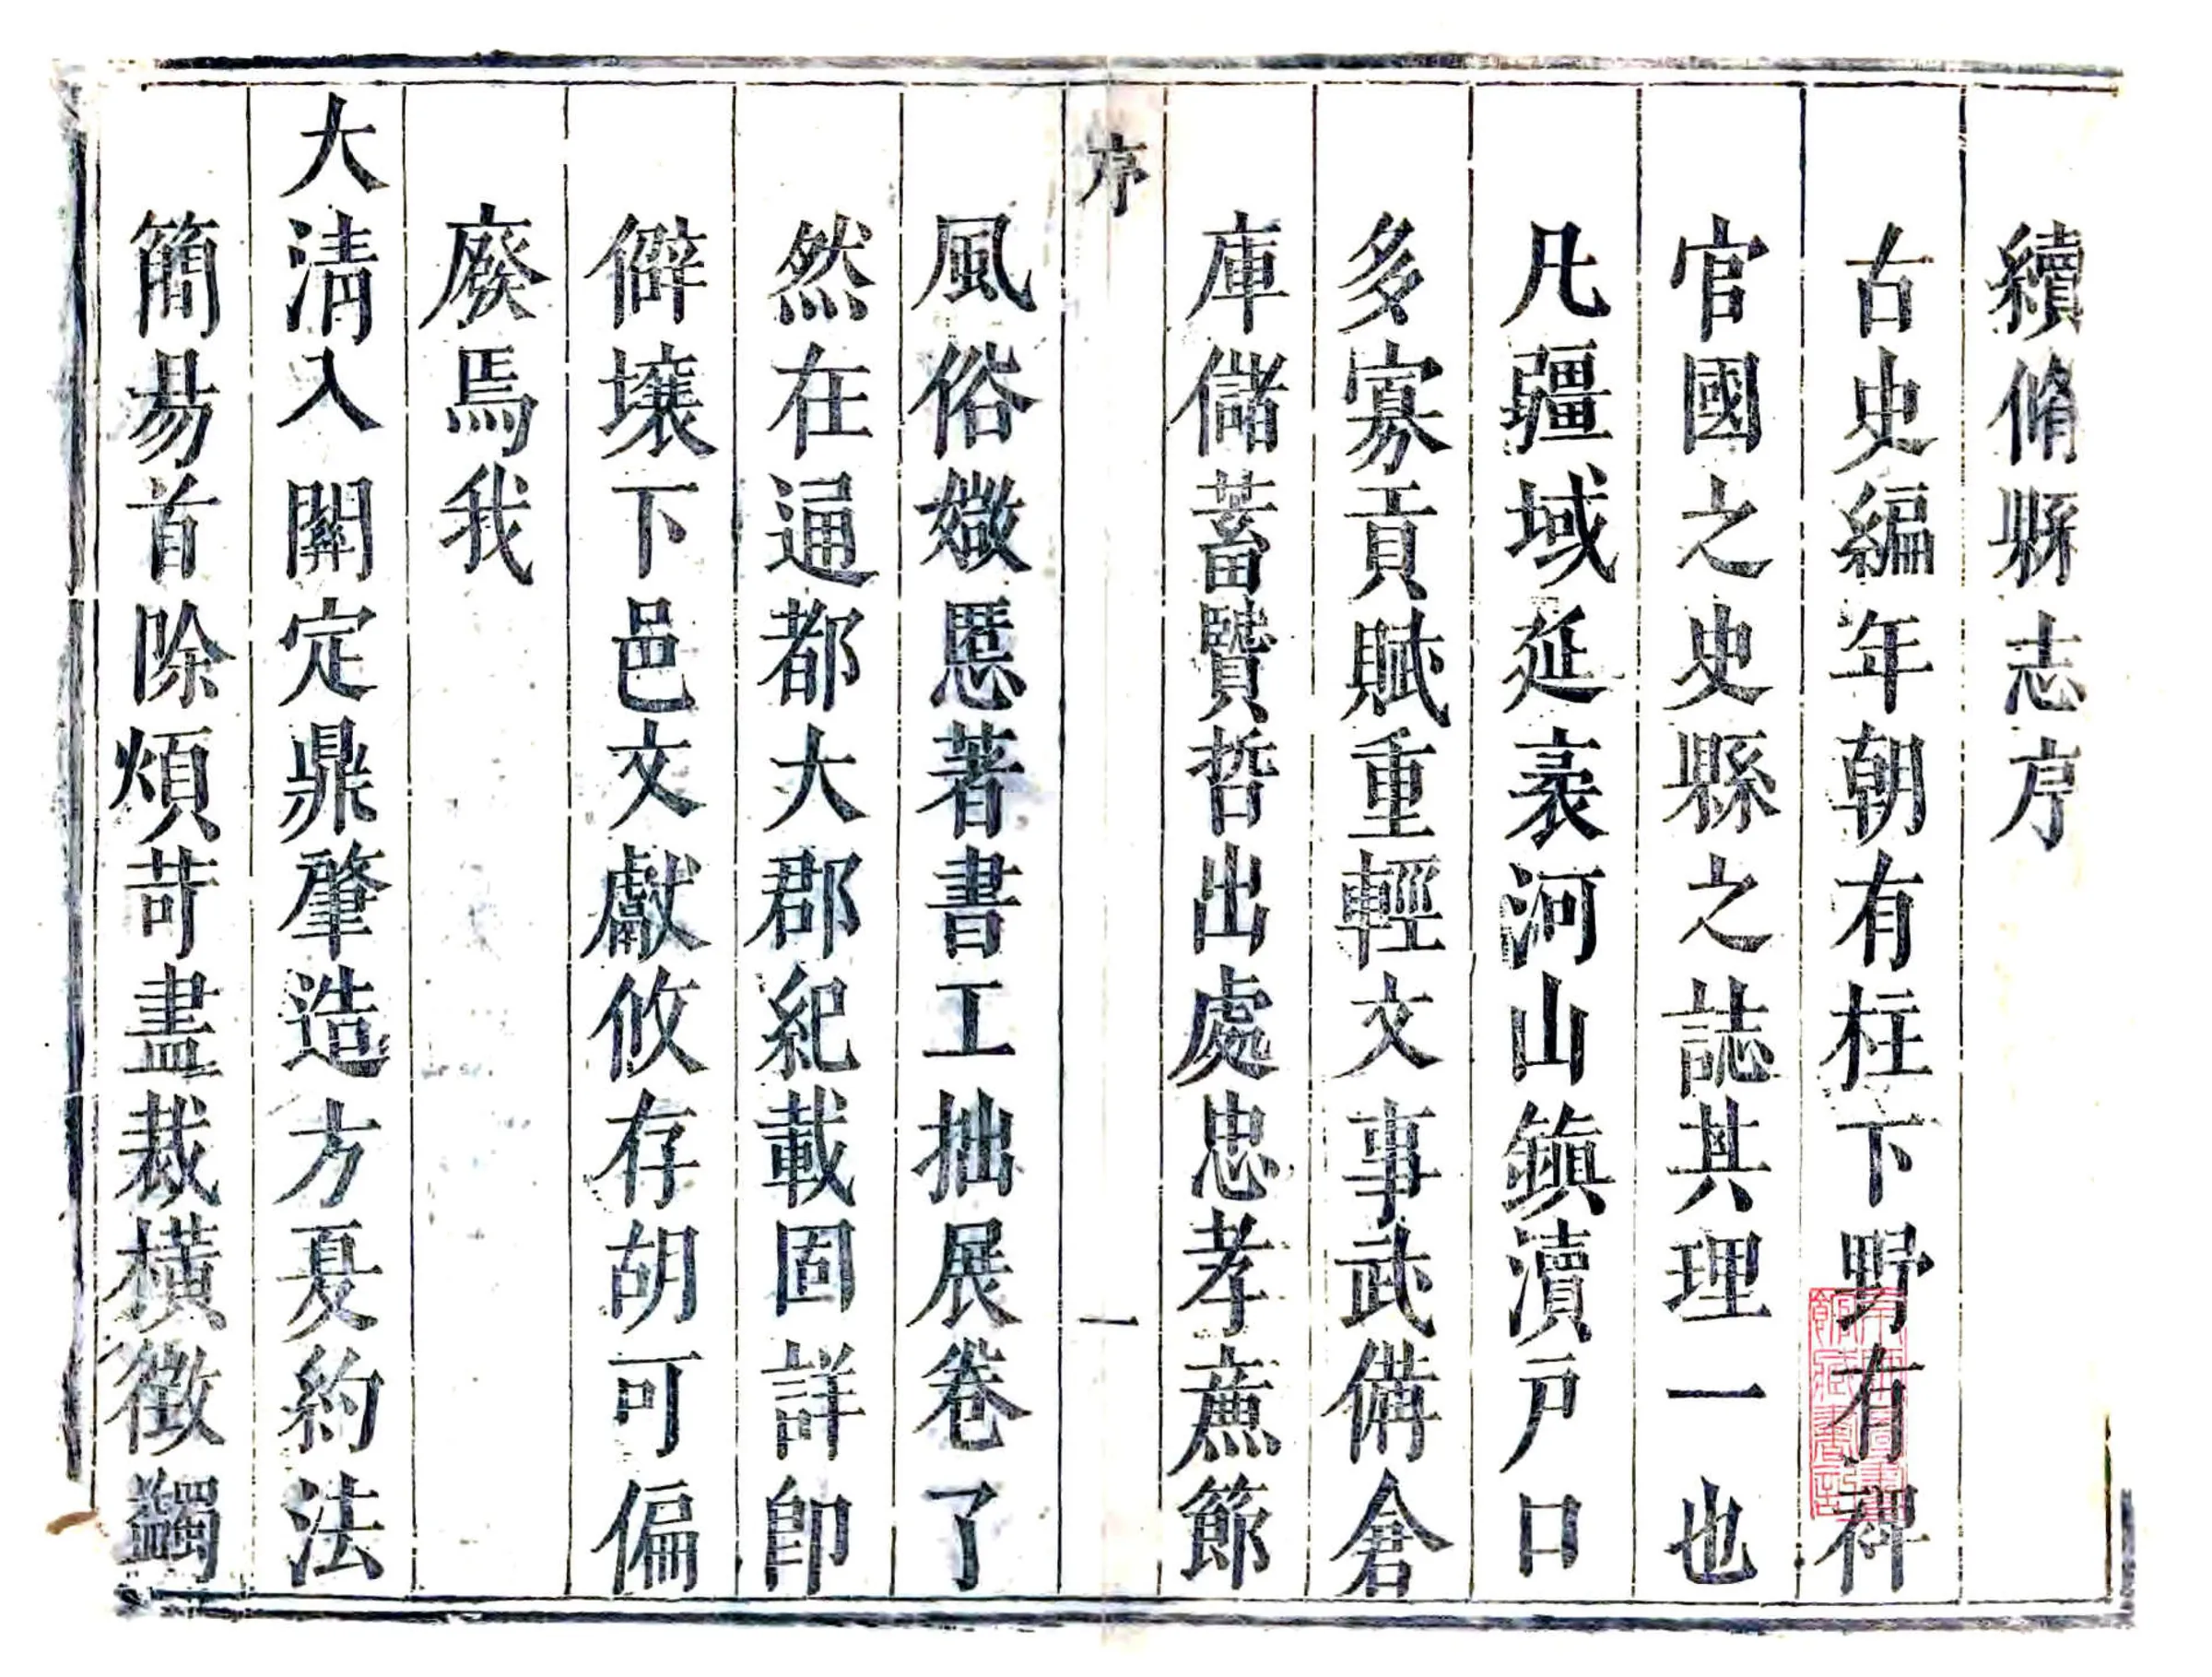 續脩縣志序
古史編年朝有柱下野有稗
官國之史縣之誌其理一也
凡疆域延袤河山鎮瀆戶口
多寡貢賦重輕文事武備倉
庫儲蓄賢哲出處忠孝廉節
序
一
風俗媺慝著書工拙展卷了
然在逼都大郡紀載固詳卽
僻壤下邑文獻攸存胡可偏
廢焉我
大清入關定鼎肇造方夏約法
簡易首除煩苛盡裁橫徵蠲